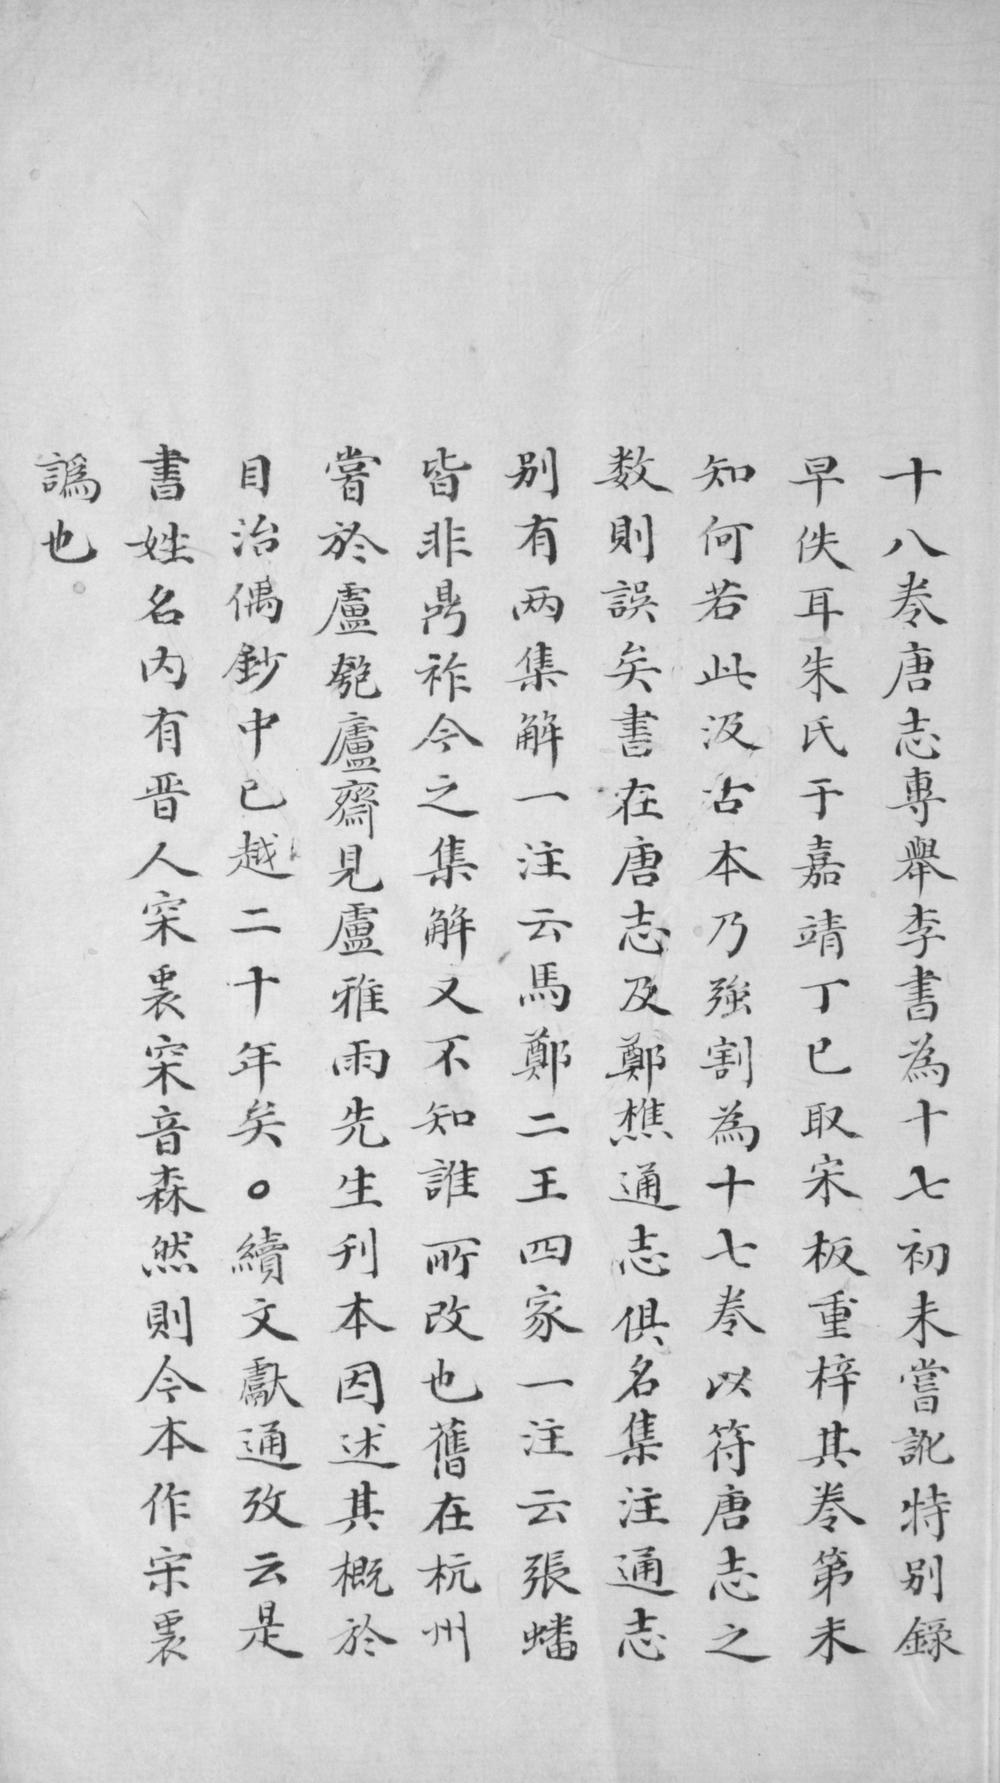 十八卷唐志專舉李書為十七初未嘗訛特別錄
早佚耳朱氏于嘉靖丁巳取宋板重梓其卷第未
知何若此汲古本乃強割為十七卷以符唐志之
数則誤矣書在唐志及鄭樵通志俱名集注通志
別有两集解一注云馬鄭二王四家一注云張蟠
皆非鼎祚今之集解又不知誰所改也舊在杭州
嘗於盧匏廬齋見盧雅雨先生刊本因述其概於
目治偶鈔中已越二十年矣。續文獻通攷云是
書姓名內有晋人寀裒寀音森然則今本作宋裒
譌也